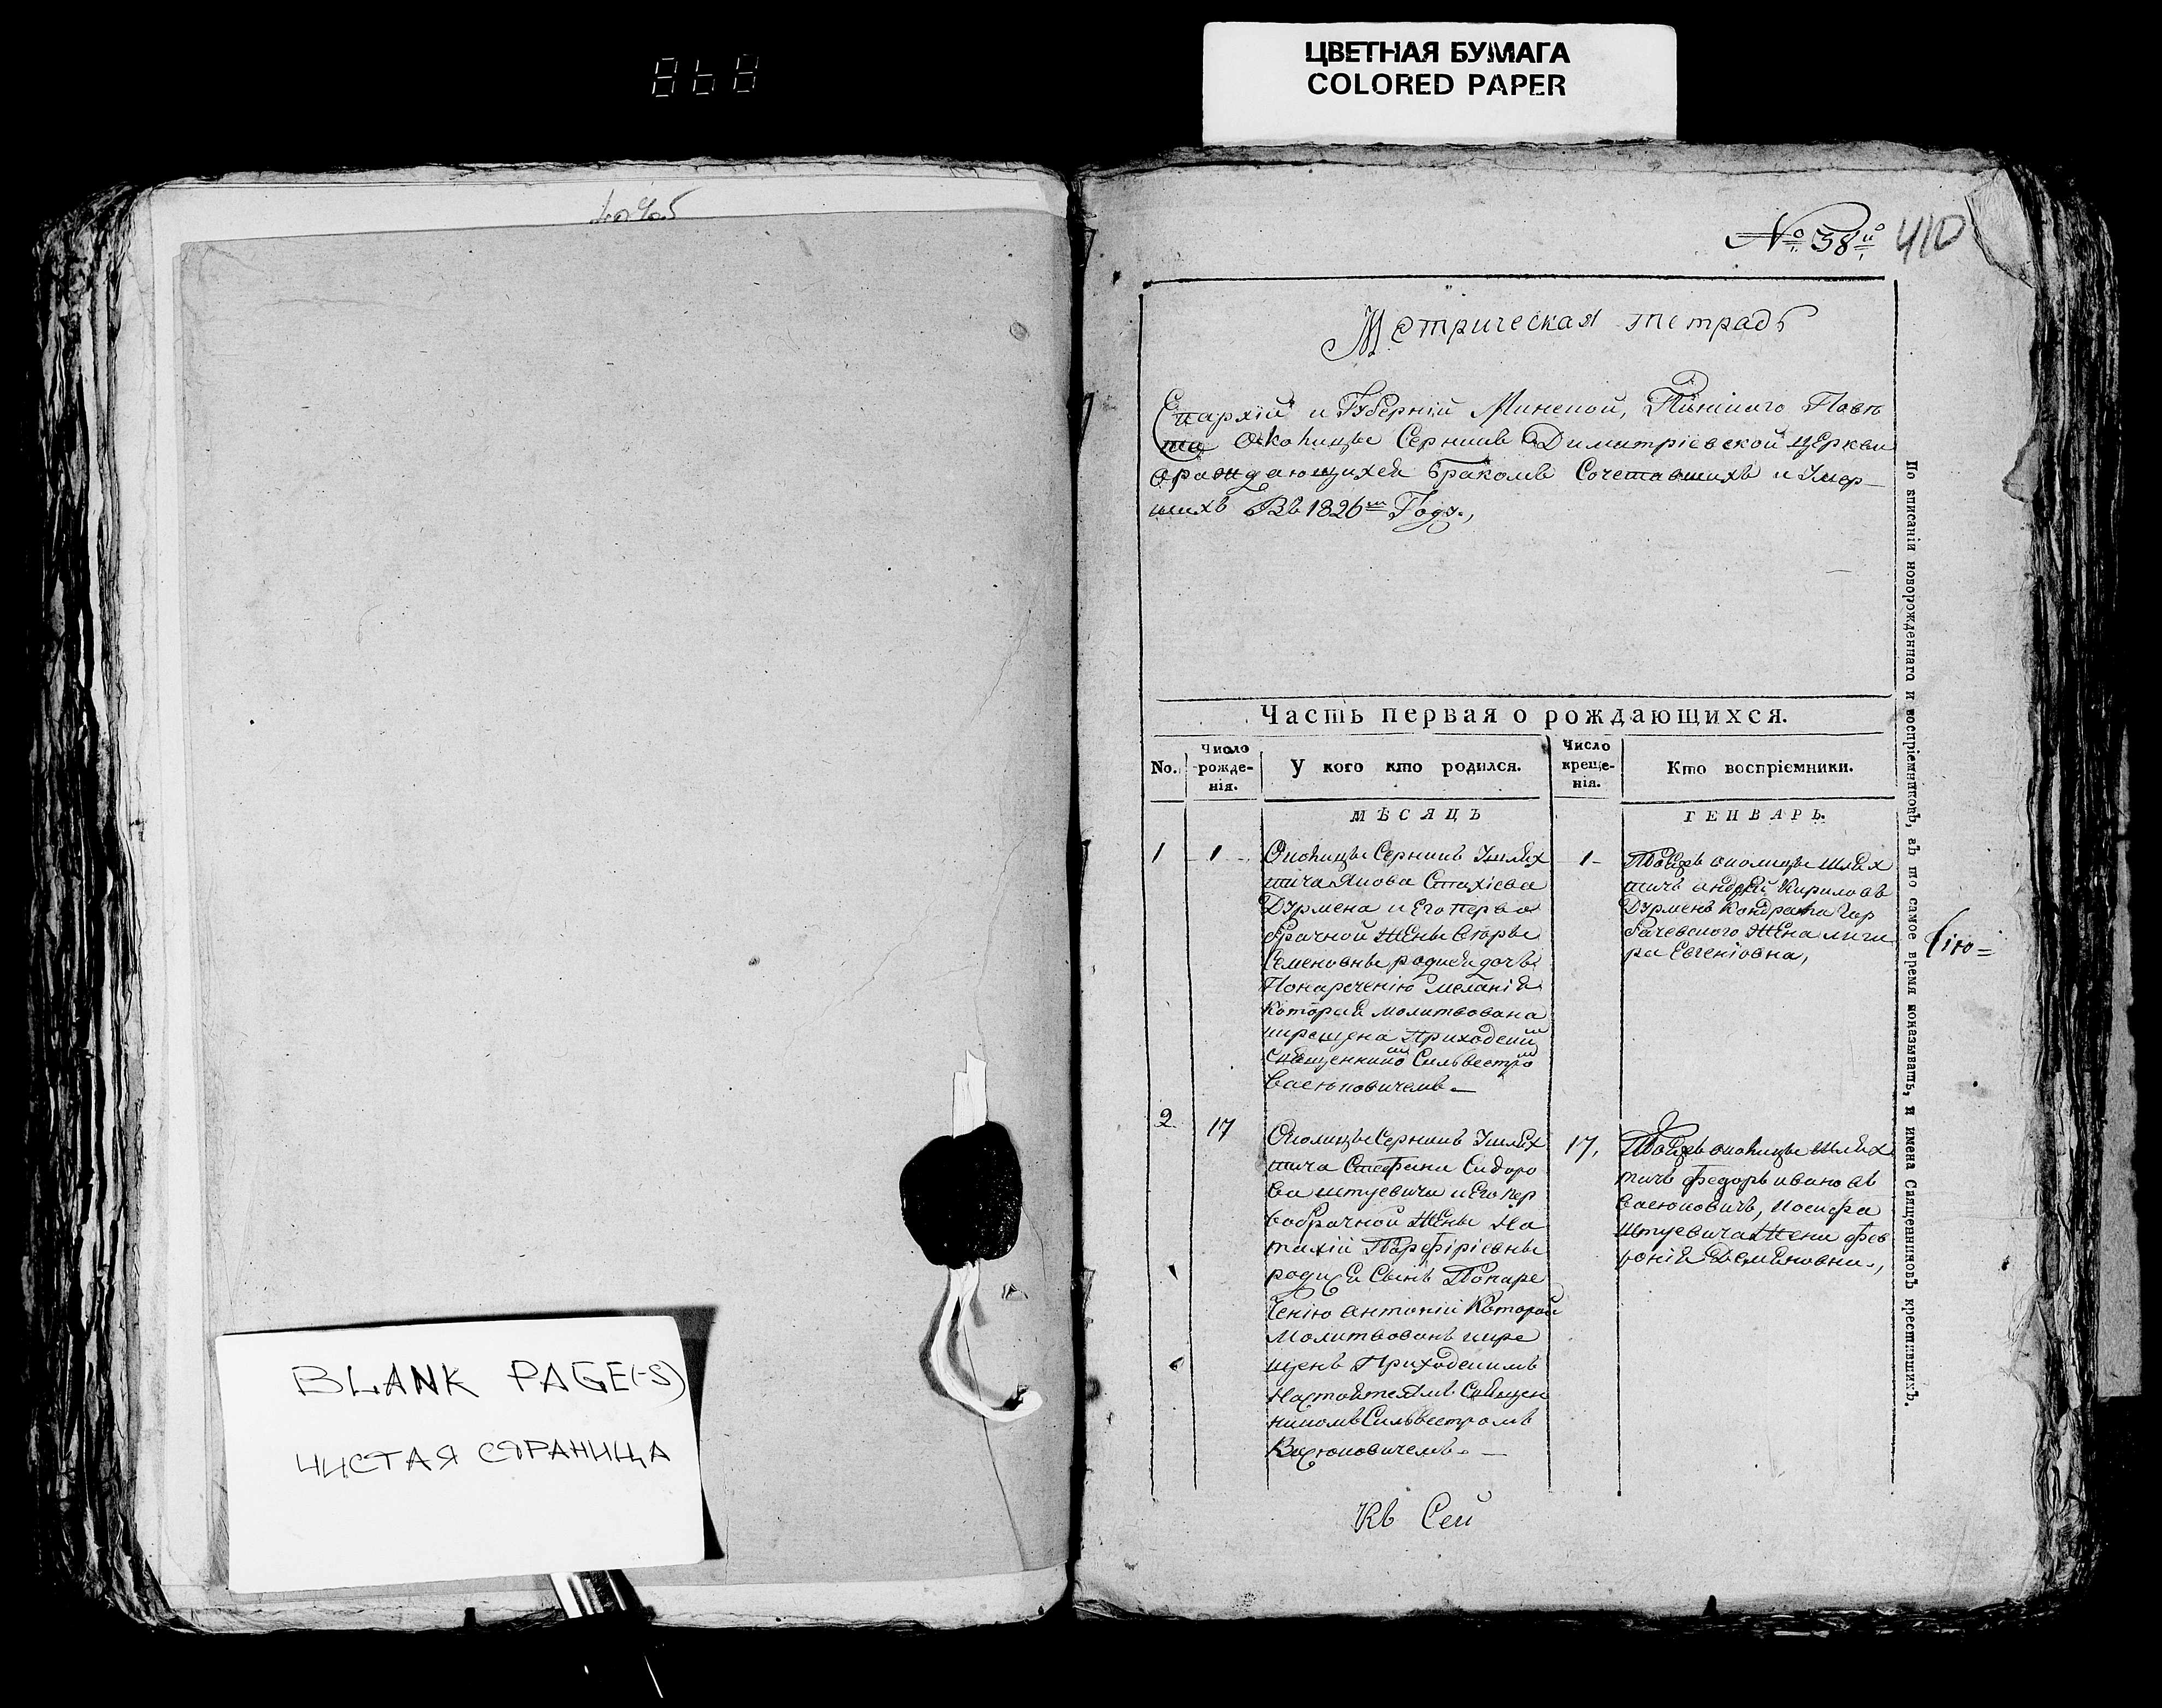 868
ЦВЕТНАЯ БУМАГА
COLORED PAPER
BLANK PAGE(-S)
ЧИСТАЯ СТРАНИЦА
№ 38й 410
Метрическая тетрадь
Епархіи и Губерніи Минской, Пинского Повѣ
та околицы Серникъ Димитріевской церкви
ораждающихся бракомъ Сочетавшихъ и Умер-
шихъ Въ 1826м Году.,
Часть первая о рождающихся.
No.
Число рожде-нія.
У кого кто родился.
Число креще-нія.
Кто воспріемники.
МѢСЯЦЪ
ГЕНВАРЬ.
1
1
Околицы Серникъ Ушлях
тича Якова Стахіева
Дурмена и Его перво
брачной Жены
Семеновны родися дочь
Понареченію Меланія
которая молитвована
икрещена Приходским
Священником Сильвестром
Васюковичемъ.
1
Тоейжъ околицы шлях
тичъ андрей Кириловъ
Дурменъ Кондрата Гор
бачевского Жена
ра Евгеніовна,
2
17
Околицы Серникъ Ушлях
тича Стефана Сидоро
ва штуевича и Его пер
вобрачной Жены На
таліи Парфіріевны
родися Сынъ Понаре
ченію антоній Которой
Молитвованъ икре
щенъ Приходскимъ
Настоятелямъ Священ
никомъ Сильвестромъ
Васюковичемъ.
17,
Тоейжъ околицы Шлях
тичъ Федоръ ивановъ
Васюковичъ, Иосифа
Штуевича Жена Фев
ронія Демяновна.,
Къ Сей
По вписаніи новорожденнаго и воспріемниковъ, въ то самое время показывать, и имена Священниковъ крестившихъ.